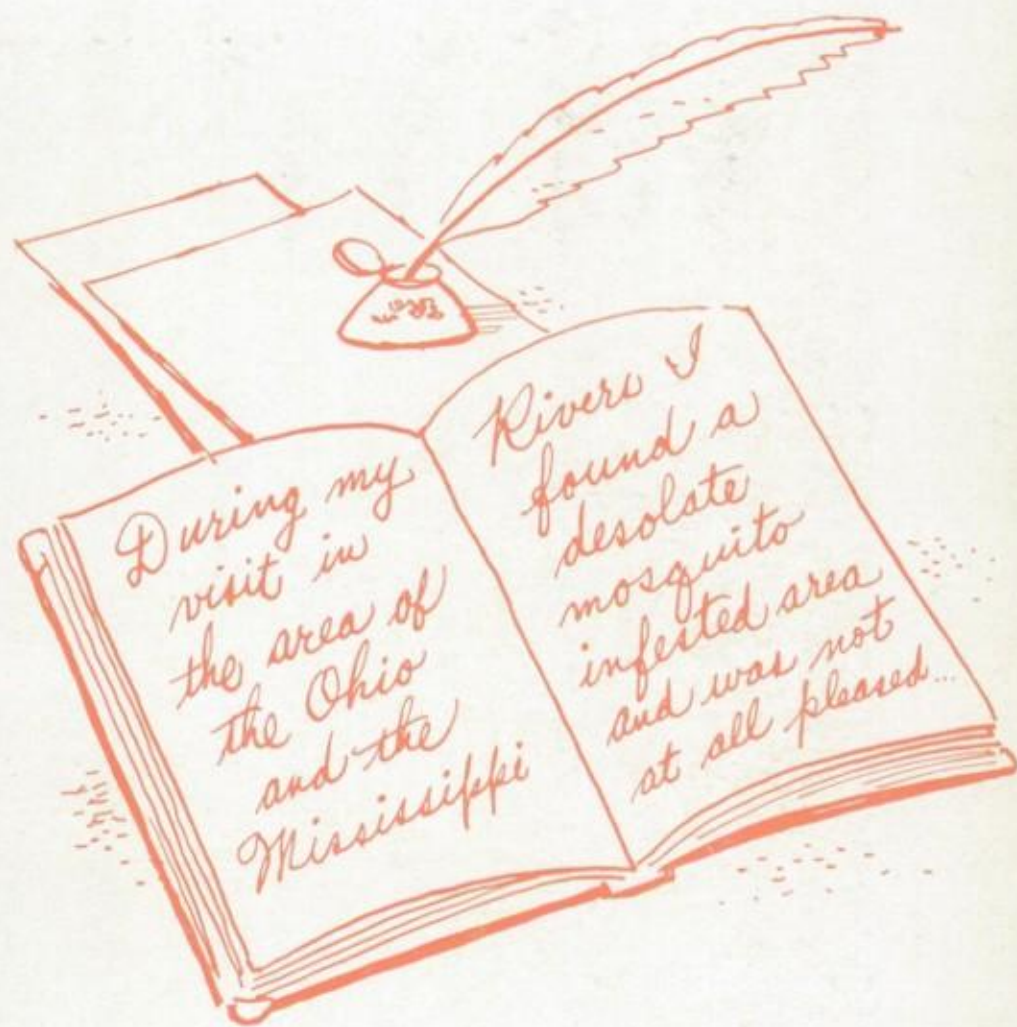 During my
visit in
the area of
the Ohio
and the
Mississippi
Rivers I
found a
desolate
mosquito
infested area
and was not
at all pleased...